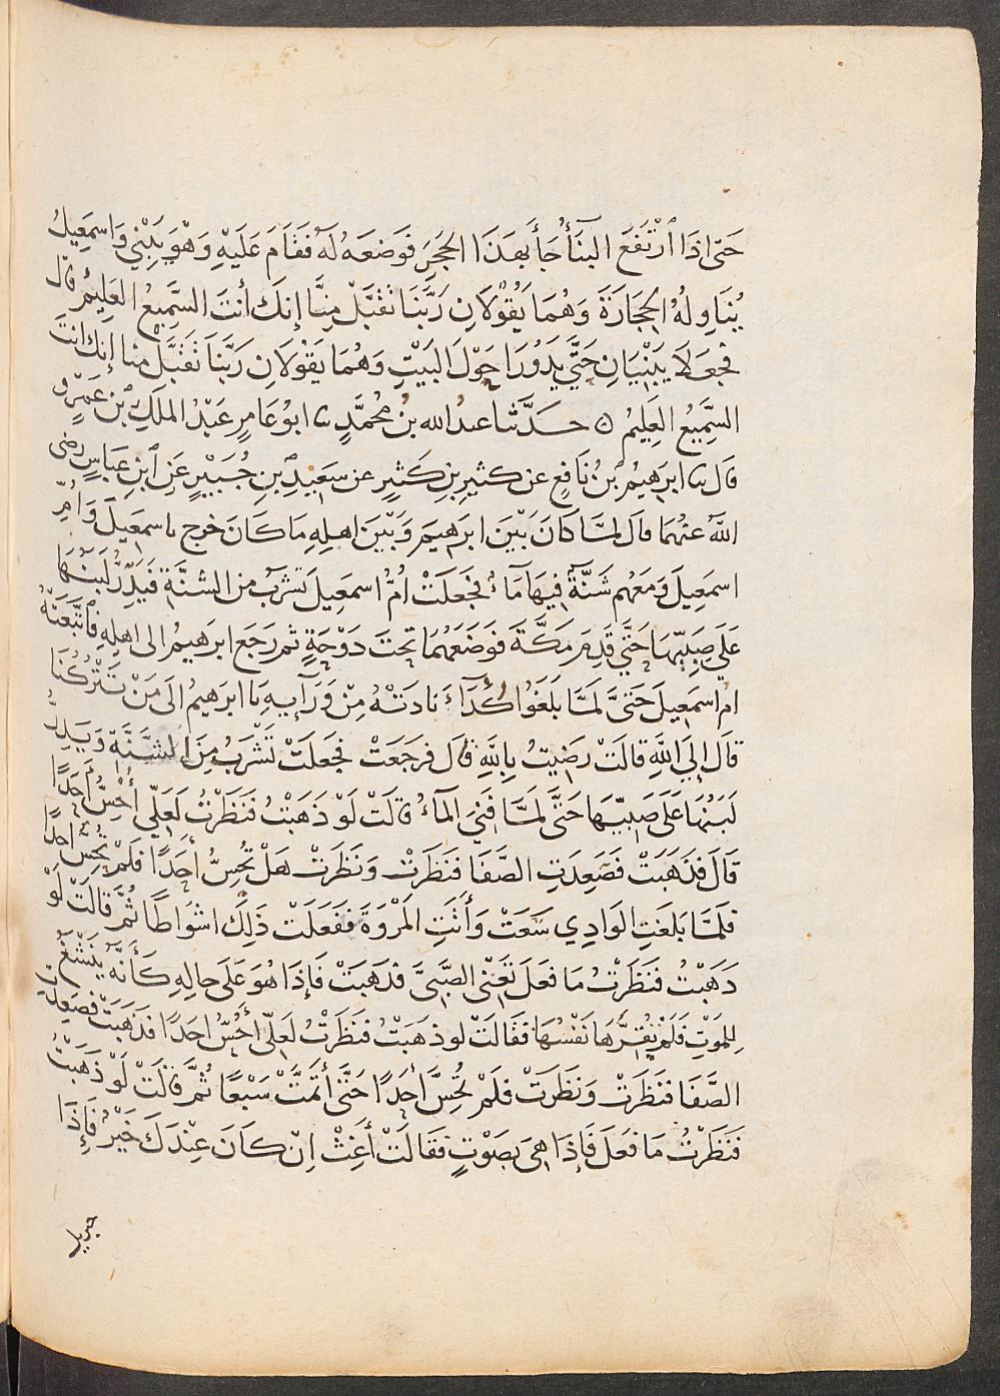 حَتّى اذَا ٱرْتَفَعَ البنَآُ جَآَ بهَذَا الحَجَرَ فَوَضعَه لَهُ فَقَامَ عَلَيْهِ وَهْوَ يَبْنِي وَاسمَعِيلُ
يُنَاوِلهُ الحِجَارَةَ وَهُمَا يَقُوْلَانِ رَبَّنَا تَقَبَّلْ مِنَّا إِنكَ أَنتَ السَّمِيعُ العَلِيمُ قال
فجعَلَا يَبْنِيَانِ حَتَّى يَدُورَا حَوْلَ البَيْتِ وَهُمَا يَقُولَانِ رَبَّنَا تَقَبَّل منا إنك انتَ
السَّمِيعُ العَلِيمُ ۝ حدَّثنا عبدُ الله بنُ محُمَّدٍ ثنا ابوُ عَامِرٍ عَبْدُ الملَكِ بْنُ عَمْرٍو
قال ثنا ابرَهِيمُ بْنُ نَافِعٍ عن كثيرِ بنِ كَثيرٍ عن سَعِيْدِ بنِ جُبَيْرٍ عَنِ ٱبْنِ عَبَاسٍ رضى
اللهُ عنهُمَا قال لمَّا كَانَ بَيْنَ ابرَهِيمَ وَبَيْنَ اهلِهِ مَا كَانَ خرج باسمَعِيلَ وَأُمِّ
اسمَعِيلَ وَمَعَهُم شَنَّةٌ فِيهَا مَآءٌ فجَعَلَتْ امُّ اسمَعِيلَ تَشرَبُ من الشنَّةِ فَيَدِرُّ لَبَنُهَا
عَلَى صَبِيِّهَا حَتَّى قَدِمَ مَكَّةَ فَوَضَعَهُمَا تحتَ دَوْحَةٍ ثم رَجَعَ ابرَهِيمُ الى اهلِهِ فَاتَّبَعَتْهُ
ام اسمَعِيلَ حَتىَّ لَمَّا بَلَغَوُا كُدَآءَ نَادَتْهُ مِنْ وَرَآيِهِ يَا ابرَهِيمُ الَى مَنْ تَتْرُكُنَا
قال الِى اللَّهِ قالَتْ رضِيتُ بِاللَّهِ قال فرجَعَتْ فجعلَتْ تَشْرَبُ مِنَ الشَّنَّةِ وَيَدِرُّ
لَبَنُهَا عَلَى صَبِيِّهَا حَتَّى لمَّا فَنِىَ المَآءُ قالَتْ لَوْ ذَهَبْتُ فَنَظَرْتُ لَعَلِّى أُحِسُّ أَحَدًا
قَالَ فذَهَبَتْ فَصَعِدَتِ الصَّفَا فنَظَرَتْ وَنَظَرَتْ هَلْ تُحِسُّ أحَدًا فلَمْ تُحِسَّ احدًا
فلَمَّا بَلغَتِ الوَادِي سَعَتْ وَأَتَتِ المَرْوَةَ فَفَعَلَتْ ذَلِكَ اشوَاطًا ثُمَّ قالَتْ لَوْ
ذَهَبْتُ فنَظَرْتُ مَا فعَلَ تَعْنِى الصَّبِىَّ فذهَبَتْ فَإِذَا هُوَ عَلَى حالِهِ كَأَنَّه يَنْشَغُ
لِلموْتِ فَلَمْ تُقِرَّهَا نَفْسُهَا فقَالَتْ لو ذهَبْتُ فنَظَرْتُ لَعَلِّى أُحِسُّ احَدًا فذَهَبَتْ فصَعِدَتِ
الصَّفَا فنَظَرَتْ وَنَظَرَتْ فلَمْ تُحِسَّ أَحَدًا حَتَّى أَتَمَّتْ سَبْعًا ثُمَّ قالَتْ لَوْ ذَهَبْتُ
فنَظَرْتُ مَا فعَلَ فَإِذَا هِىَ بصَوْتٍ فقَالَتْ أَغِثْ اِنْ كَانَ عِنْدَكَ خَيْرٌ فَإِذَا
جبريل